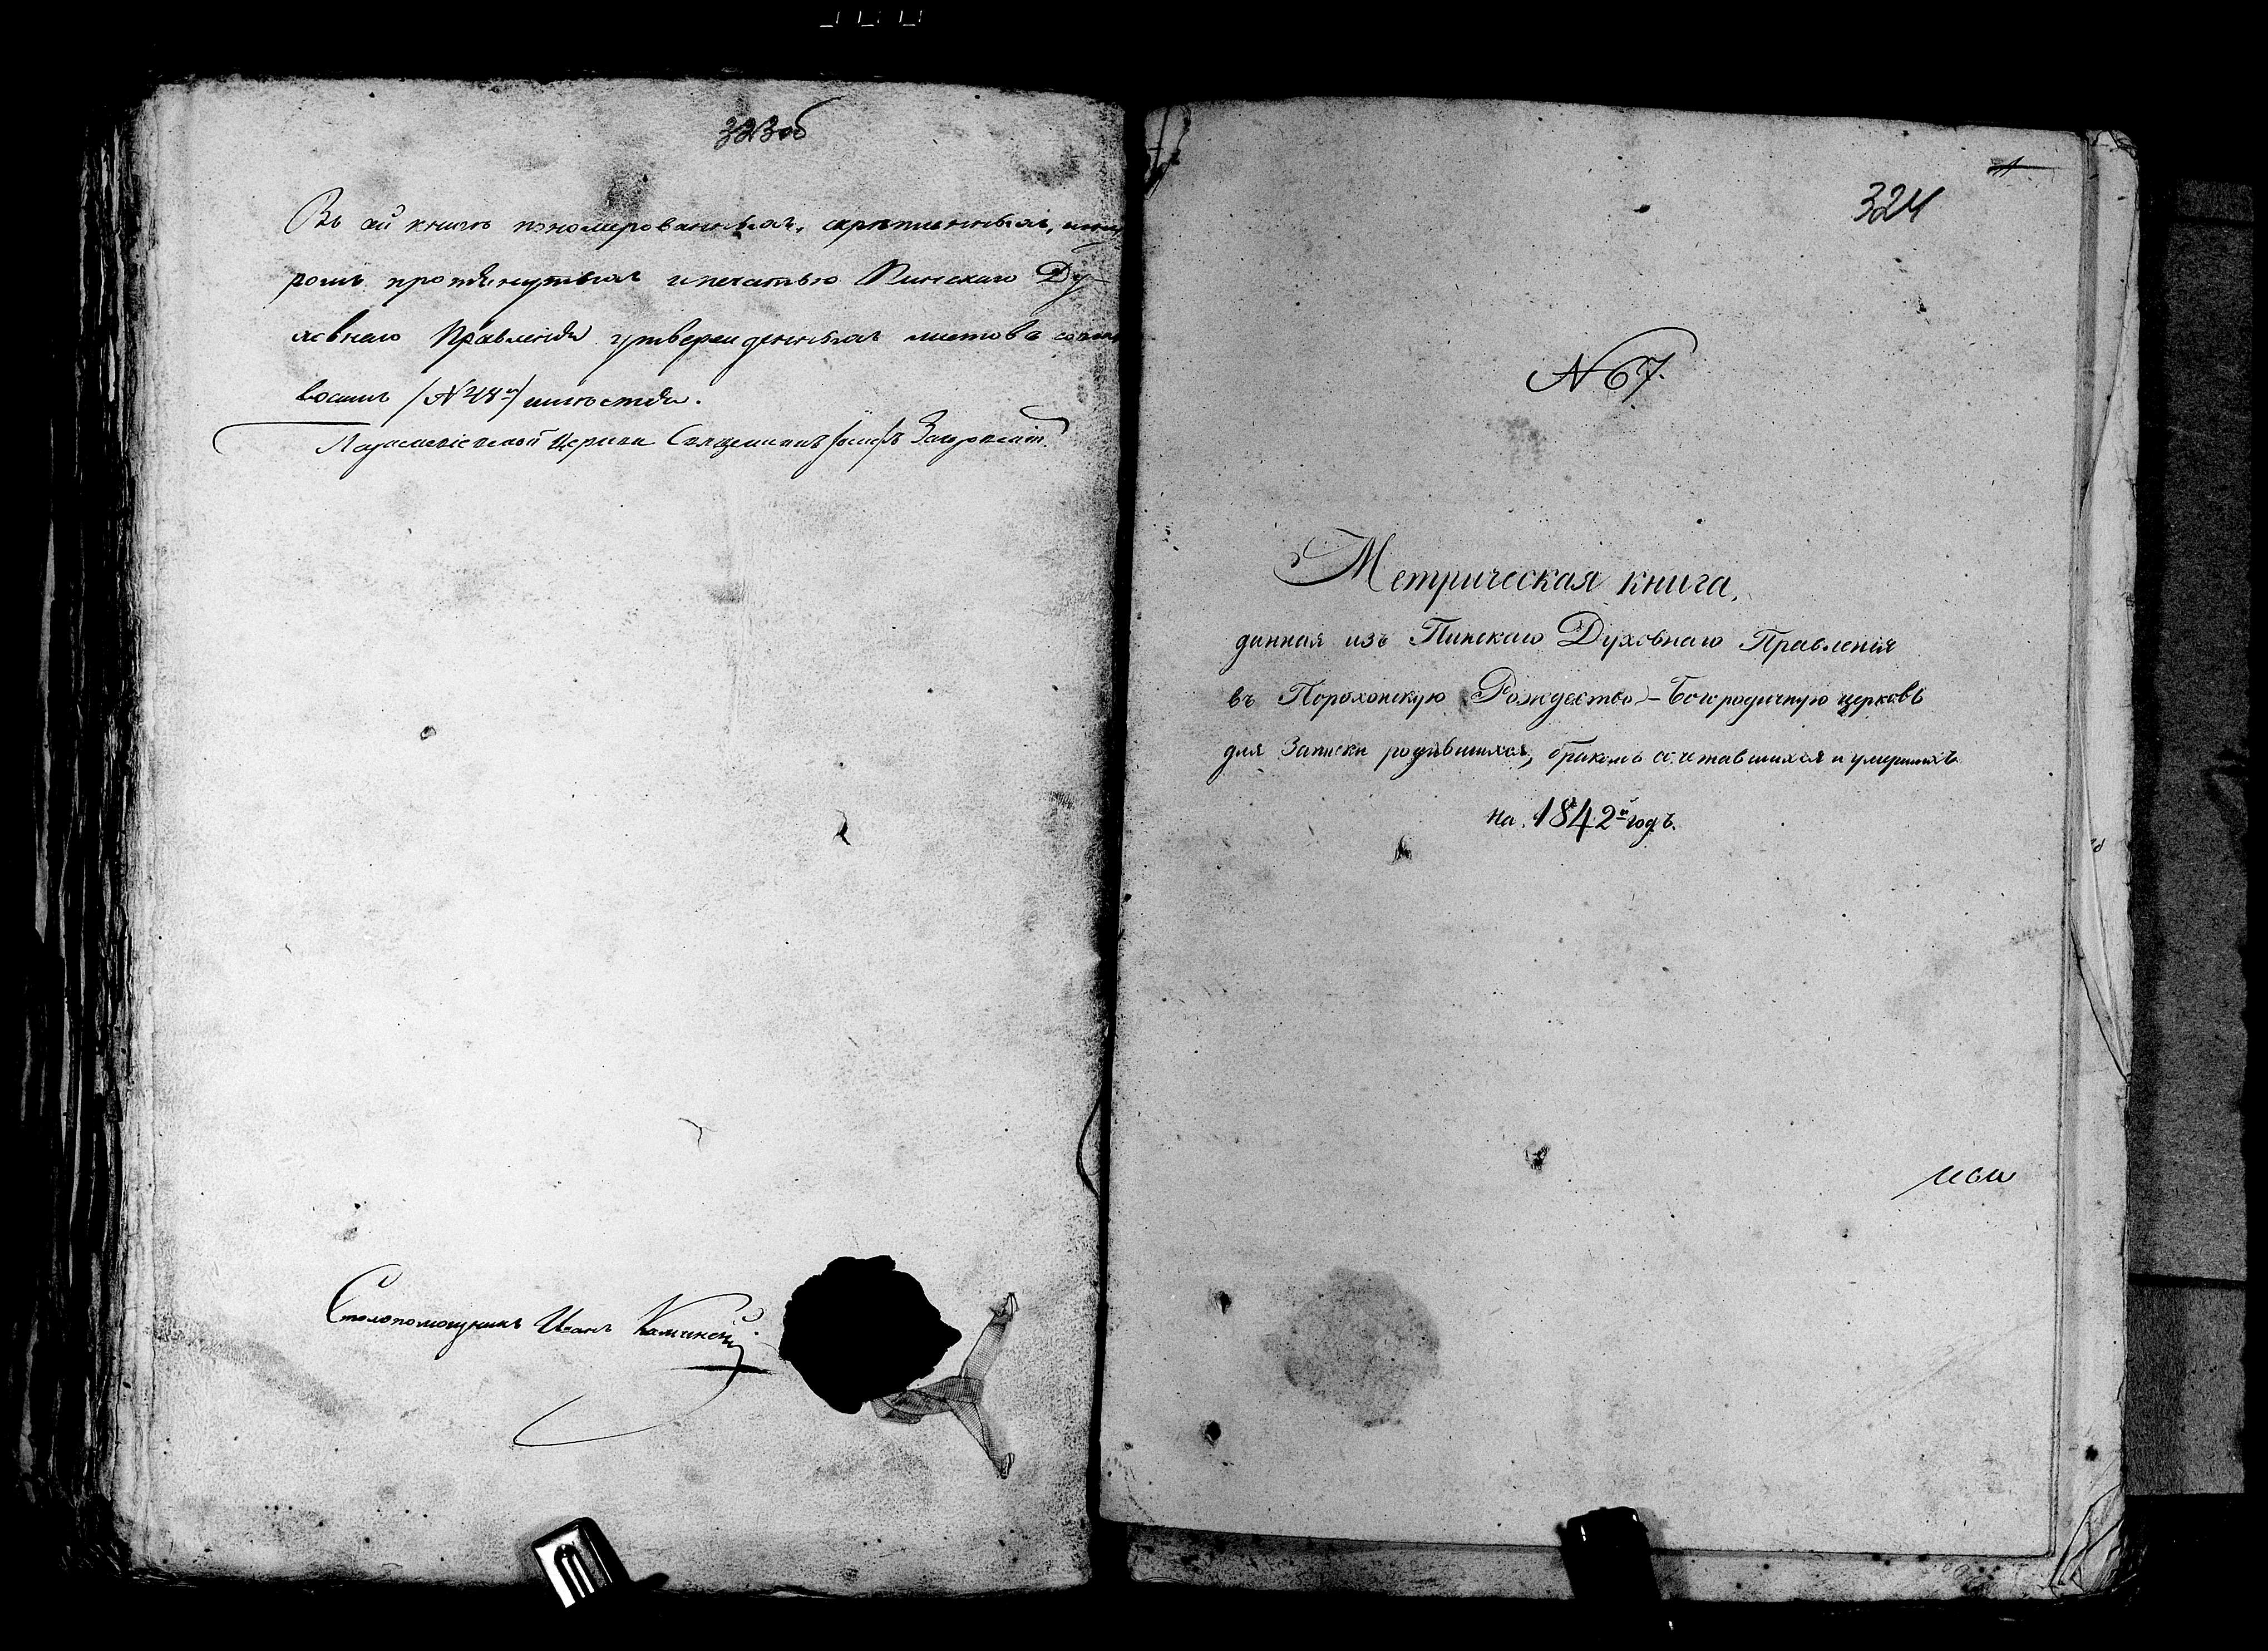 323об
Въ сей книгѣ пономерованныхъ, скрѣпленныхъ, шну
ромъ протянутыхъ и печатью Пинскаго Ду-
ховнаго Правленія утвержденныхъ листовъ
восемь /№ 48й/ листовъ.
Церкви Священникъ Іосифъ
Столопомощникъ Иванъ Каминскій
1
324
№ 67.
Метрическая книга,
данная изъ Пинскаго Духовнаго Правленія
въ Порохонскую Рождество-Богородичную церковь
для Записки родившихся, бракомъ сочетавшихся и умершихъ
на 1842й годъ.